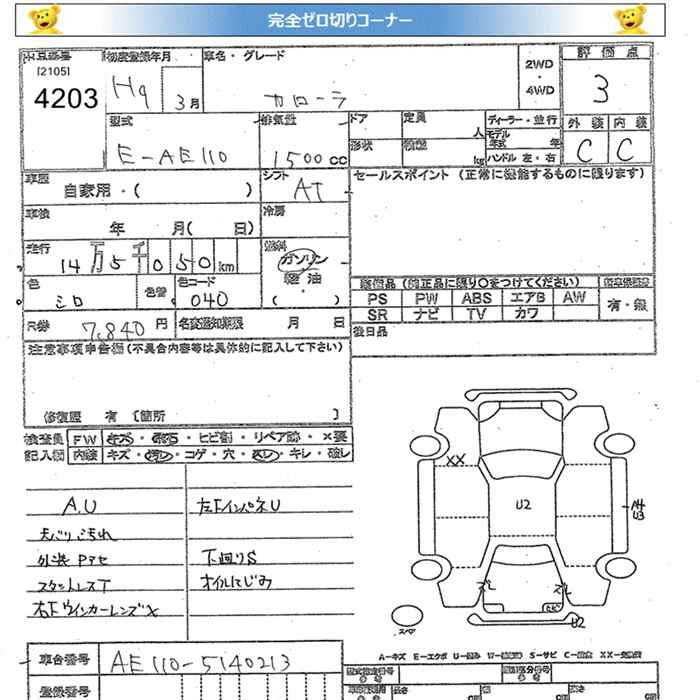 完全ゼロ切りコーナー
出品番号 初度登録年月 車名・グレード 2WD・4WD 評価点
[2105]
4203 H9 3月 カローラ 3
型式 排気量 ドア 定員 人 ディーラー・並行 外装 内装
E-AE110 1500cc 形状 積載 kg モデル年式 年 C C
ハンドル 左・右
車歴 自家用・( ) シフト AT セールスポイント (正常に機能するものに限ります)
車検 年 月( 日) 冷房
走行 14万5千050km 燃料 ガソリン 軽油 ・ ( )
色 シロ 色替 色コード 040
装備品 (純正品に限り○をつけてください)
PS PW ABS エアB AW 有・無
SR ナビ TV カワ
R券 7,840円 名変通知期限 月 日 後日品
注意事項申告欄(不具合内容等は具体的に記入して下さい)
修復歴 有 [箇所 ]
検査員 FW キズ・飛石・ヒビ割・リペア跡・×要
記入欄 内装 キズ・汚れ・コゲ・穴・スレ・キレ・破レ
A.U 左下インパネU
天バリ汚れ
外装Pアセ 下廻りS
スタットレスT オイルにじみ
右Fウインカーレンズ×
XX
U2
A4
U3
U2
スペア
A-キズ E-エクボ U-凹み W-補修跡 S-サビ C-腐食 XX-交換済
車台番号 AE110-5140213
登録番号 型式指定番号 類別区分番号
長さ 幅 高さ